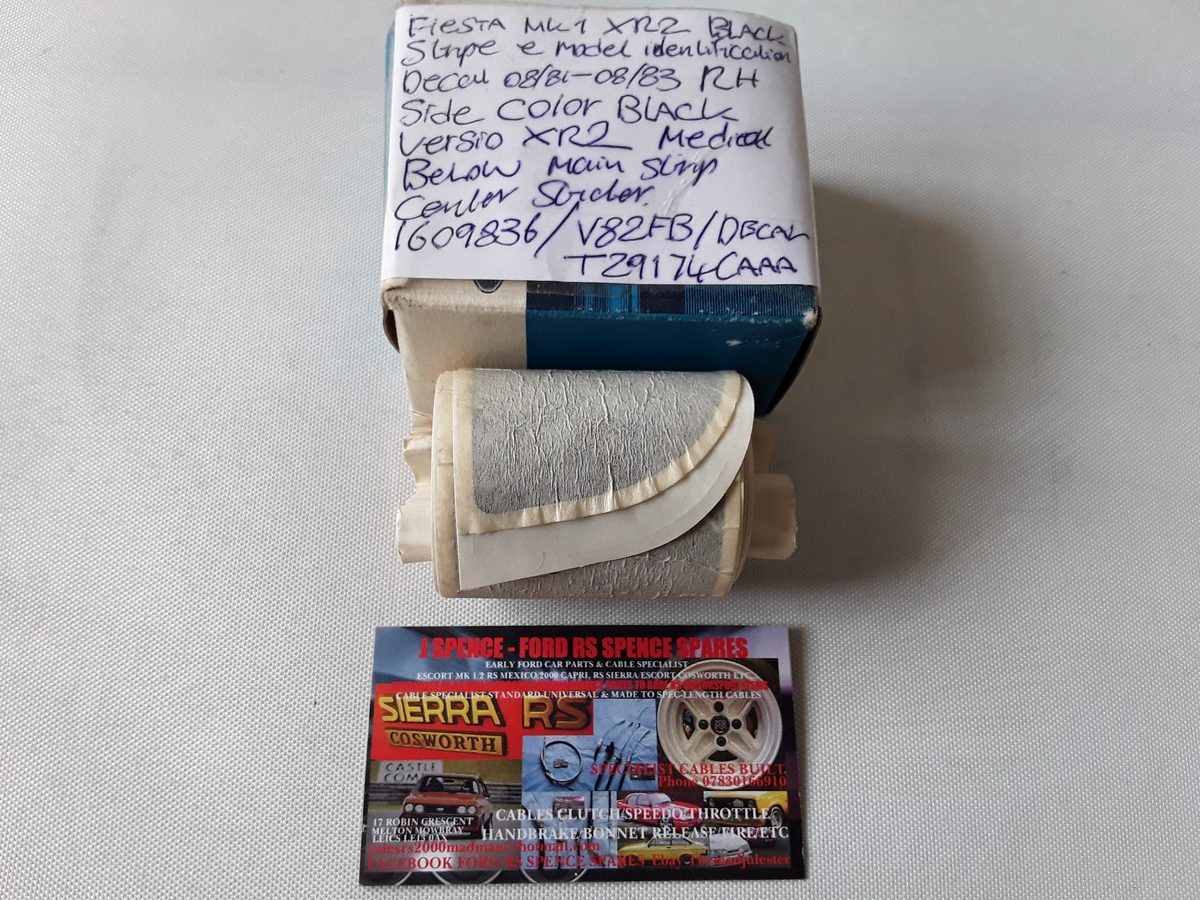 Fiesta MK1 XR2 BLACK
Stripe e model identification
Decal 08/81-08/83 RH
Side COLOR BLACK
Versio XR2 Medical
Below Main Strip
Center Sticker.
1609836/V82FB/DECAL
T29174CAAA
J SPENCE - FORD RS SPENCE SPARES
EARLY FORD CAR PARTS & CABLE SPECIALIST
ESCORT MK 1/2 RS MEXICO/2000 CAPRI, RS SIERRA ESCORT COSWORTH ETC
CABLE SPECIALIST STANDARD UNIVERSAL & MADE TO SPEC LENGTH CABLES
SIERRA RS
COSWORTH
SPECIALIST CABLES BUILT.
Phone 07830166910
CASTLE
COM
CABLES CLUTCH/SPEEDO/THROTTLE
HANDBRAKE/BONNET RELEASE/FIRE/ETC
17 ROBIN CRESCENT
MELTON MOWBRAY
LEICS LE13
FACEBOOK FORD RS SPENCE SPARES